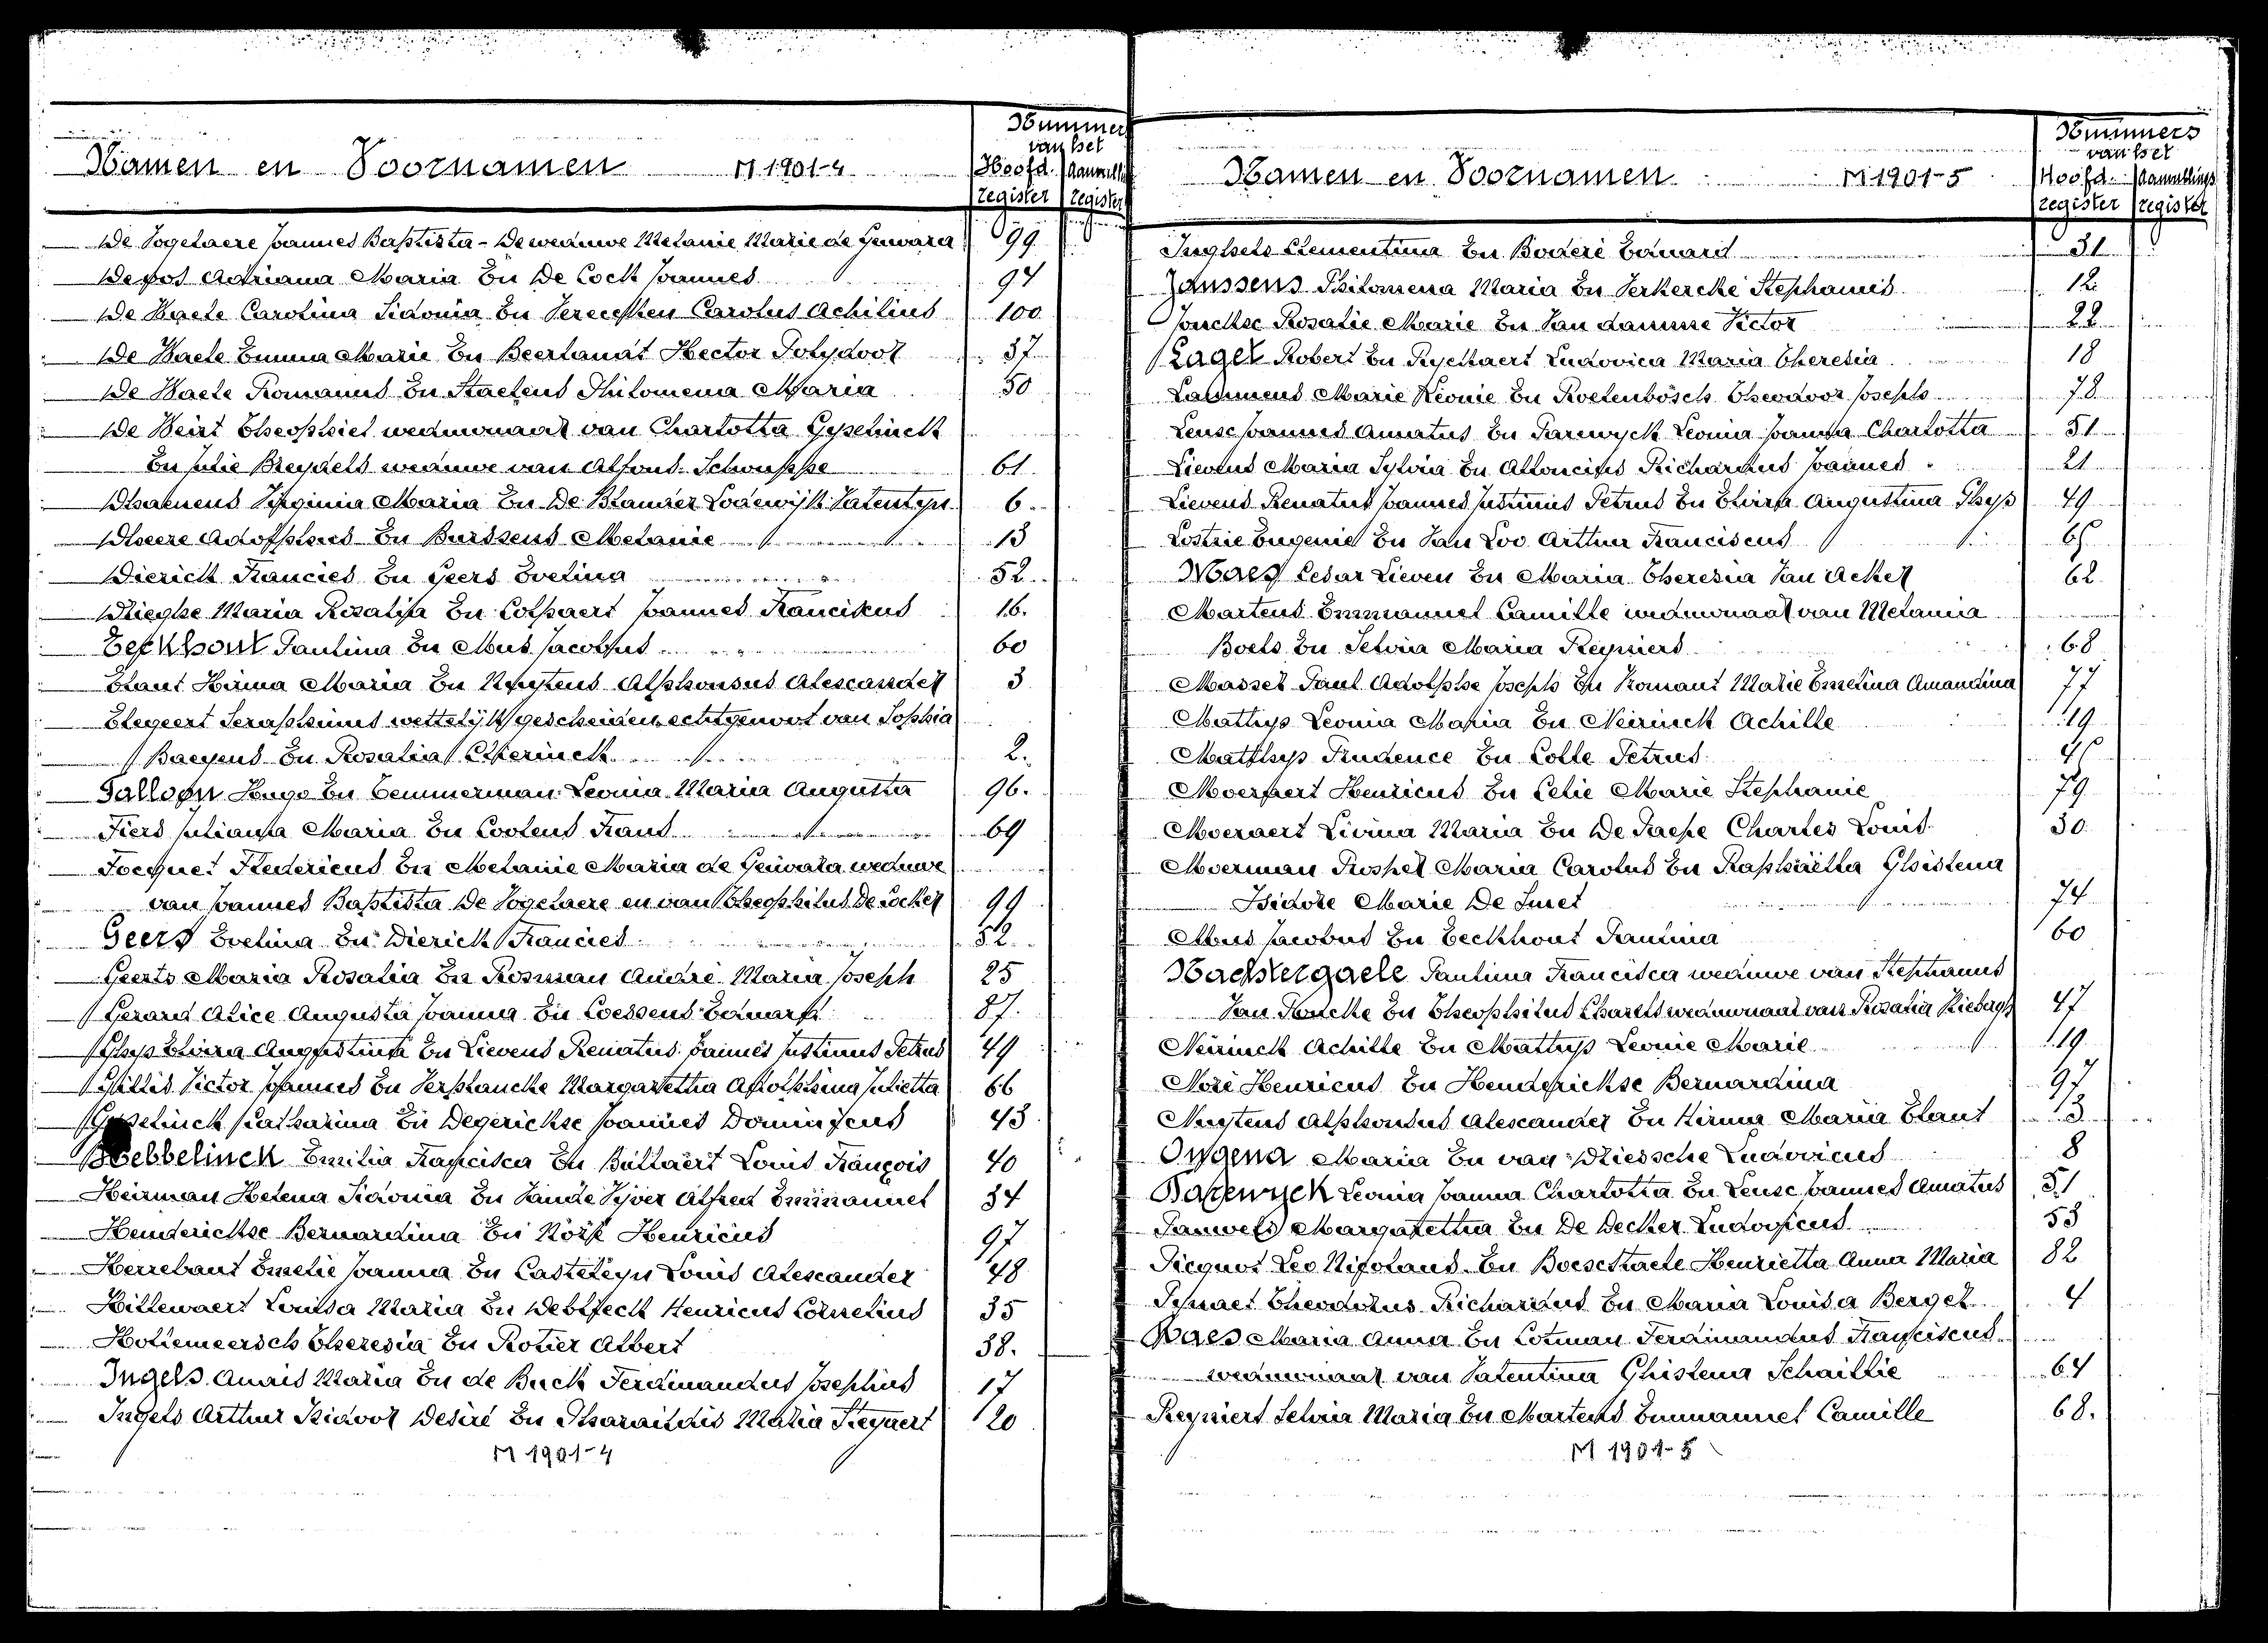 Namen en Voornamen M 1901-4
Nummers
van het
Hoofd. Aanvull
register register
De Vogelaere Joannes Baptista - De weduwe Melanie Marie de Guevara 99
De vos Adriana Maria En De Cock Joannes 94
De Waele Carolina Sidonia En Vereecken Carolus Achilius 100
De Waele Emma Marie En Beerlandt Hector Polydoor 37
De Waele Romanus En Staelens Philomena Maria 50
De Weirt Theophiel weduwnaar van Charlotta Gyselinck
En Julie Breydels weduwe van Alfons Schouppe 61
Dhaenens Virginia Maria En De Blander Lodewijk Valentyn 6
Dheere Adolphus En Burssens Melanie 13
Dierick Francies En Geers Evelina 52
Drieghe Maria Rosalia En Colpaert Joannes Franciscus 16.
Eeckhout Paulina En Mus Jacobus 60
Elaut Hirma Maria En Nuytens Alphonsus Alexander 3
Elegeert Seraphinus wettelijk gescheiden echtgenoot van Sophia
Baeyens En Rosalia 2.
Galloen Hugo En Temmerman Leonia Maria Augusta 96.
Fiers Juliana Maria En Coolens Frans 69
Focquet Fredericus En Melanie Maria de Guevara weduwe
van Joannes Baptista De Vogelaere en van Theophilus De Cocker 99
Geers Evelina En Dierick Francies 52
Geerts Maria Rosalia En Rosman André Maria Joseph 25
Gerard Alice Augusta Joanna En Coessens Edmard 87.
Ghys Elvira Augustina En Lievens Renatus Joannes Justinus Petrus 49
Gillis Victor Joannes En Verplancke Margaretha Adolphina Julietta 66
Gyselinck Catharina En Degerickse Joannes Dominicus 43
Hebbelinck Emilia Francisca En Ballaert Louis François 40
Heirman Helena Sidonia En Vande Vyver Alfred Emmanuel 34
Henderickse Bernardina En Noré Henricus 97
Herrebaut Emelie Joanna En Casteleyn Louis Alexander 48
Hillewaert Louisa Maria En Henricus Cornelius 35
Hollemeersch Theresia En Rotier Albert 38.
Ingels Anaïs Maria En de Buck Ferdinandus Josephus 17
Ingels Arthur Isidoor Desiré En Pharaïldis Maria Reyaert 20
M 1901-4
Namen en Voornamen M 1901-5
Nummers
van het
Hoofd. Aanvullings
register register
Inghels Clementina En Boderé Edmard 31
Janssens Philomena Maria En Verkercke Stephanus 12
Rosalie Marie En Van damme Victor 22
Lager Robert En Ryckaert Ludovica Maria Theresia 18
Marie Leonie En Roelenbosch Theodoor Joseph 78
Leuse Joannes Amatus En Parewyck Leonia Joanna Charlotta 51
Lievens Maria Sylvia En Richardus Joannes 21
Lievens Renatus Joannes Justinus Petrus En Elvira Augustina Ghys 49
Lostrie Eugenie En Van Loo Arthur Franciscus 65
Maes Cesar Lieven En Maria Theresia Van Acker 62
Martens Emmanuel Camille weduwnaar van Melania
Boels En Selvia Maria Reyniers 68
Masset Paul Adolphe Joseph En Romant Marie Emelina Amandina 77
Mathys Leonia Maria En Neirinck Achille 19
Matthys Prudence En Colle Petrus 45
Moeraert Henricus En Celie Marie Stephanie 79
Moeraert Livina Maria En De Paepe Charles Louis 30
Moerman Prosper Maria Carolus En Raphaëlla Ghislena
Isidore Marie De Smet 74
Mus Jacobus En Eeckhout Paulina 60
Nachtergaele Paulina Francisca weduwe van Stephanus
Van En Theophilus Charels weduwnaar van Rosalia 47
Neirinck Achille En Mathys Leonie Marie 19
Noré Henricus En Henderickse Bernardina 97
Nuytens Alphonsus Alexander En Hirma Maria Elaut 3
Ongena Maria En van Driessche Ludovicus 8
Parewyck Leonia Joanna Charlotta En Leuse Joannes Amatus 51
Pauwels Margaretha En De Decker Ludovicus 53
Picquot Leo Nifolaus En Henrietta Anna Maria 82
Theodorus Richardus En Maria Louisa Berger 4
Raes Maria Anna En Cotman Ferdinandus Franciscus
weduwnaar van Valentina Ghislena Schaillie 64
Reyniers Selvia Maria En Martens Emmanuel Camille 68.
M 1901-5